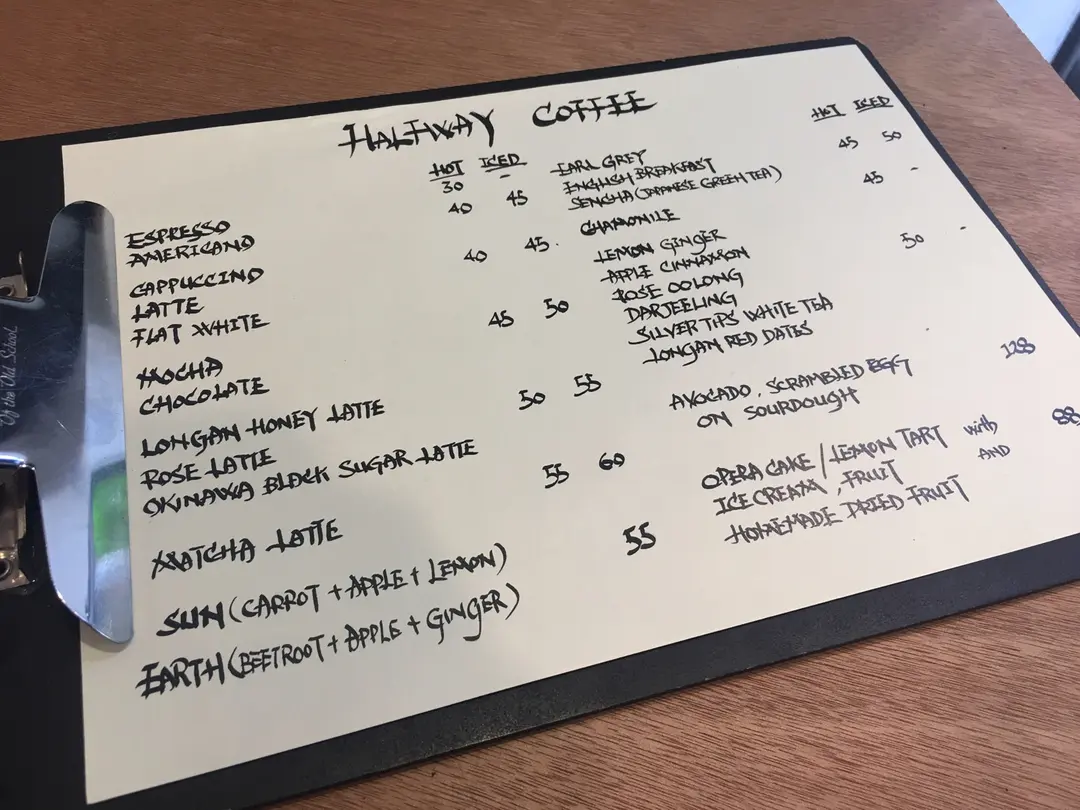 HALFWAY COFFEE
HOT ICED
30 -
ESPRESSO
40 45
AMERICANO
40 45.
CAPPUCCINO
LATTE
FLAT WHITE
45 50
MOCHA
CHOCOLATE
50 55
LONGAN HONEY LATTE
ROSE LATTE
OKINAWA BLACK SUGAR LATTE
55 60
MATCHA LATTE
55
SUN (CARROT + APPLE + LEMON)
EARTH (BEETROOT + APPLE + GINGER)
HOT ICED
EARL GREY 45 50
ENGLISH BREAKFAST
SENCHA (JAPANESE GREEN TEA)
45 -
CHAMOMILE
LEMON GINGER
APPLE CINNAMON
50 -
ROSE OOLONG
DARJEELING
SILVER TIPS WHITE TEA
LONGAN RED DATES
AVOCADO, SCRAMBLED EGG 128
ON SOURDOUGH
OPERA CAKE / LEMON TART with 88
ICE CREAM, FRUIT AND
HOMEMADE DRIED FRUIT
Of the Old School